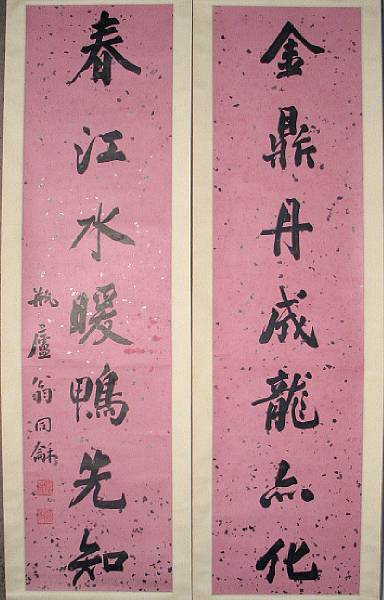 金鼎丹成龍亦化
春江水暖鴨先知
瓶廬翁同龢